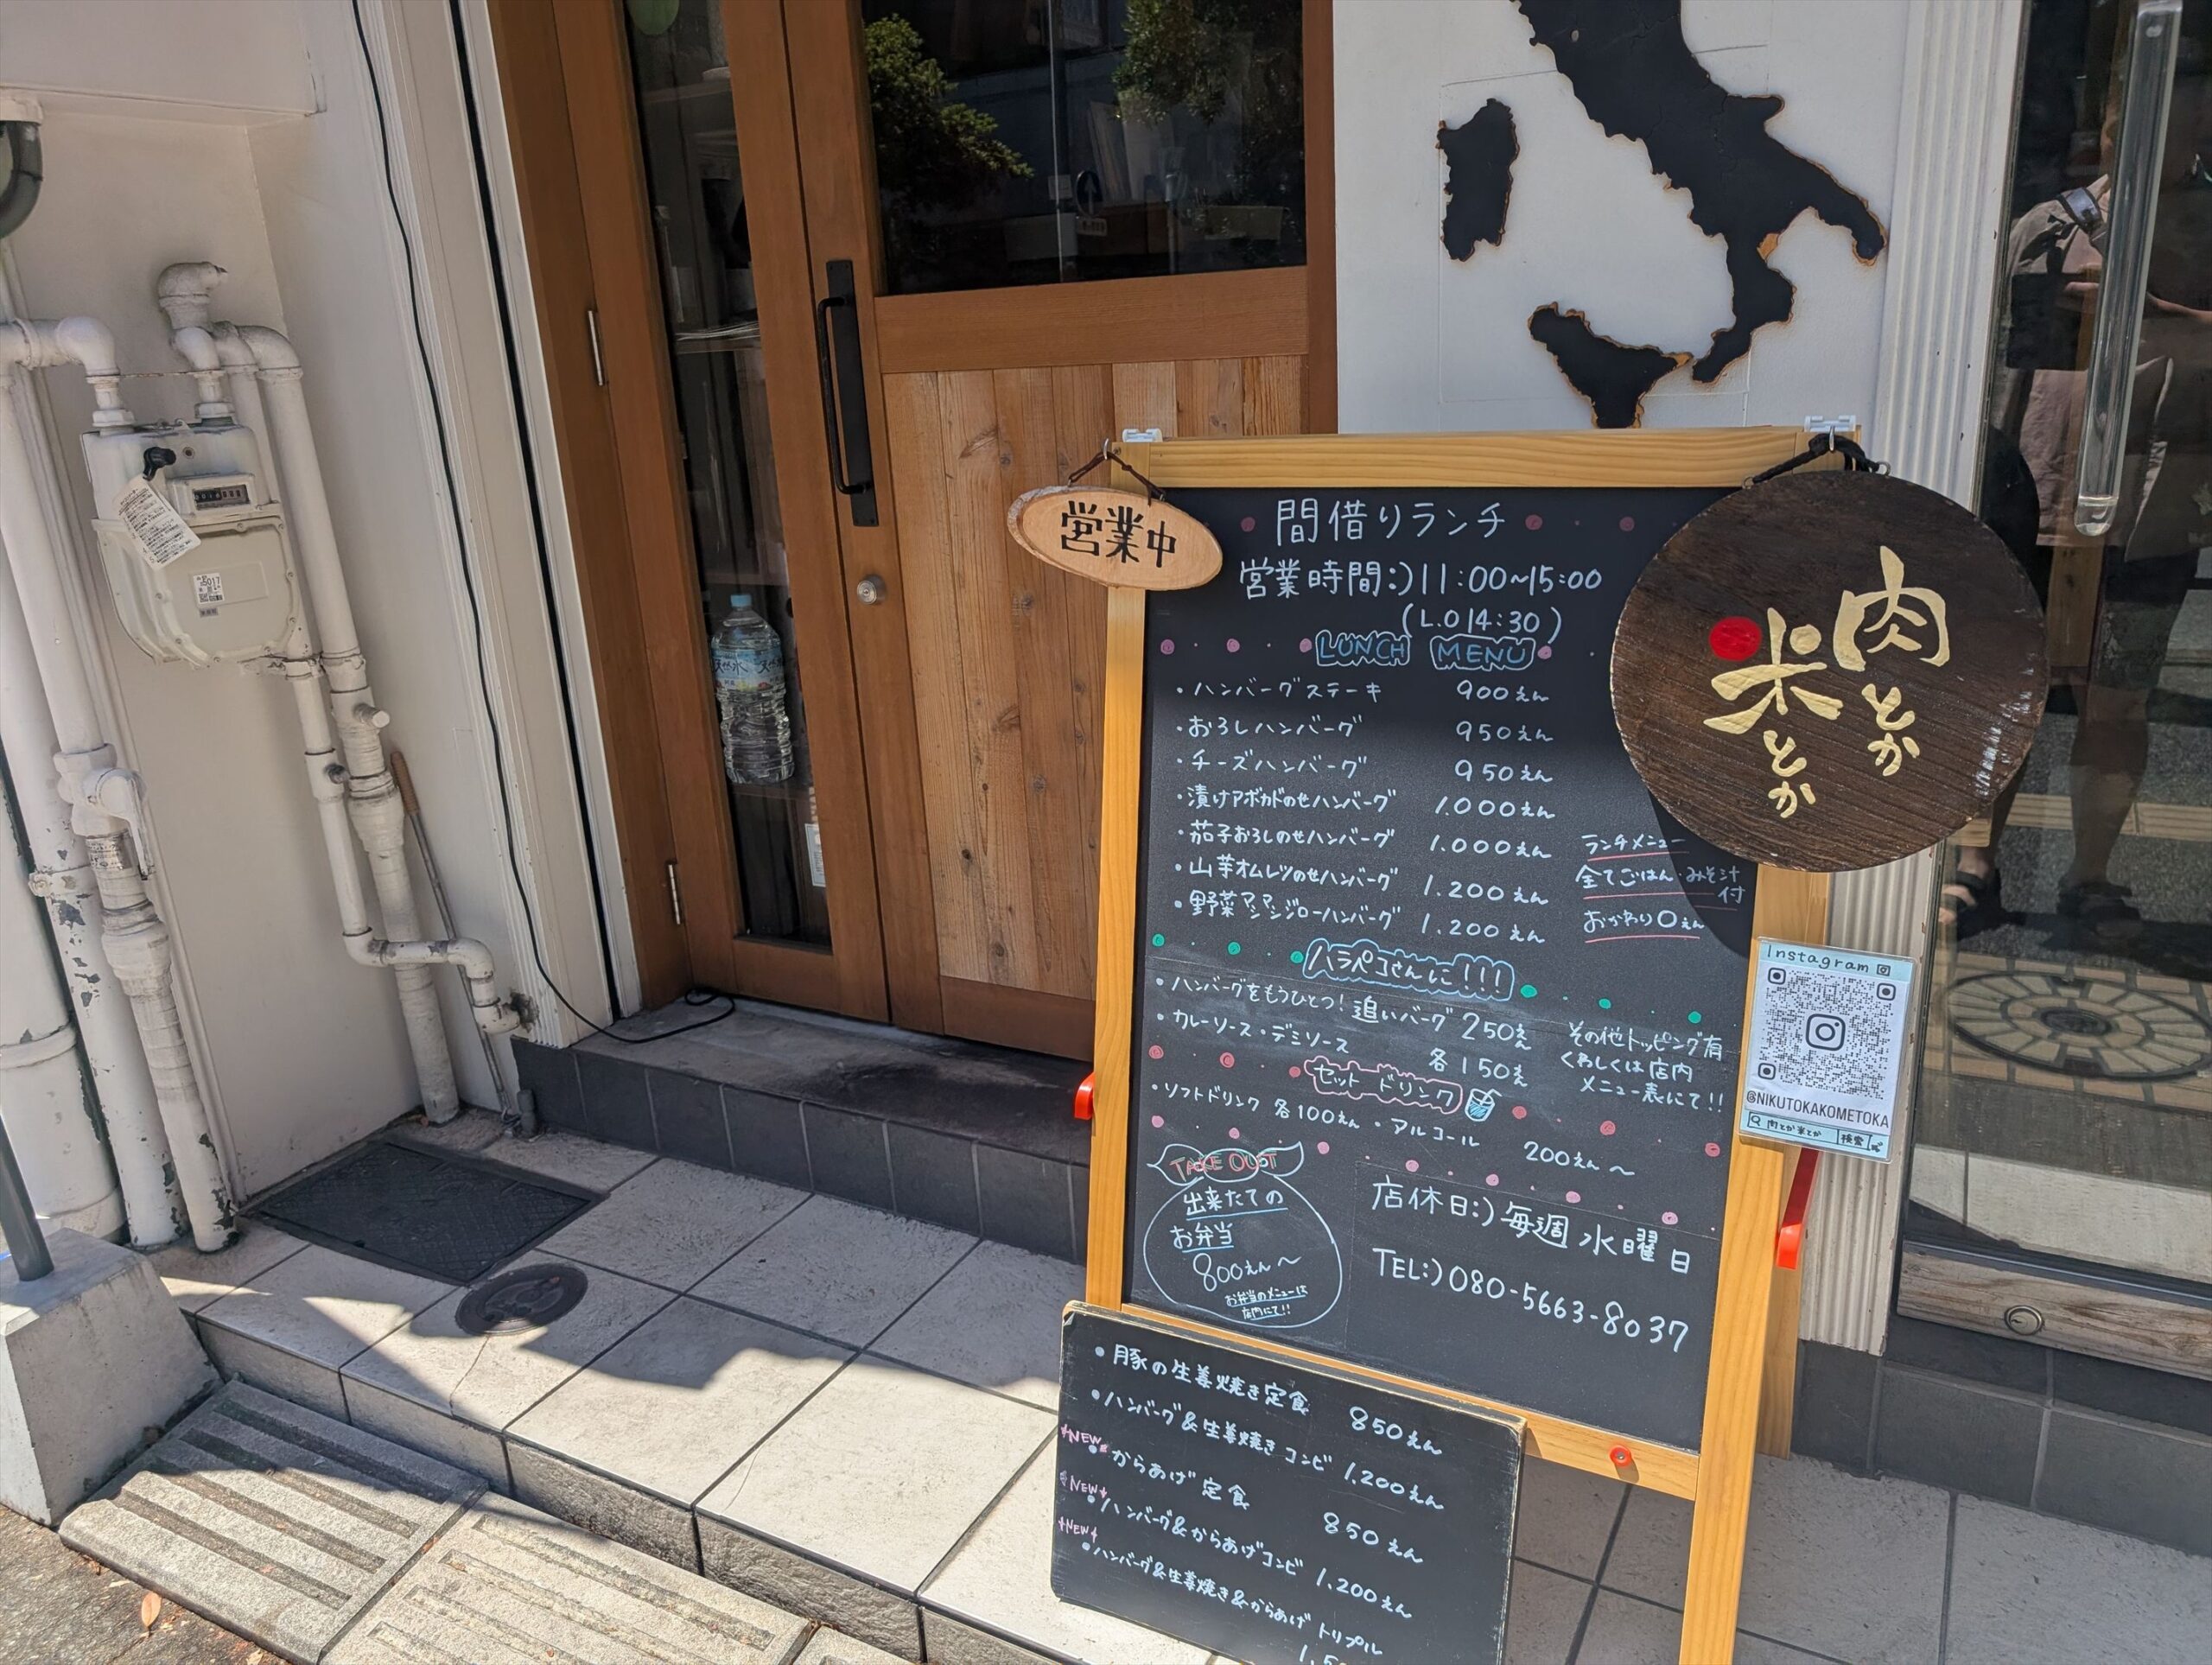 営業中
間借りランチ
営業時間:)11:00~15:00
(L.O 14:30)
LUNCH MENU
・ハンバーグステーキ 900えん
・おろしハンバーグ 950えん
・チーズハンバーグ 950えん
・漬けアボカドのせハンバーグ 1.000えん
・茄子おろしのせハンバーグ 1.000えん
・山芋オムレツのせハンバーグ 1.200えん
・野菜マシマシジローハンバーグ 1.200えん
ランチメニュー
全てごはん・みそ汁付
おかわり0えん
ハラペコさんに!!!
・ハンバーグをもうひとつ!追いバーグ 250えん
・カレーソース・デミソース 各150えん
その他トッピング有
くわしくは店内
メニュー表にて!!
セットドリンク
・ソフトドリンク 各100えん ・アルコール 200えん~
TAKE OUT
出来たての
お弁当
800えん~
お弁当のメニューは
店内にて!!
店休日:)毎週水曜日
TEL:)080-5663-8037
肉とか
米とか
Instagram
@NIKUTOKAKOMETOKA
肉とか米とか 検索
・豚の生姜焼き定食 850えん
・ハンバーグ&生姜焼きコンビ 1.200えん
NEW
・からあげ定食 850えん
NEW
・ハンバーグ&からあげコンビ 1.200えん
NEW
・ハンバーグ&生姜焼き&からあげトリプル
天然水